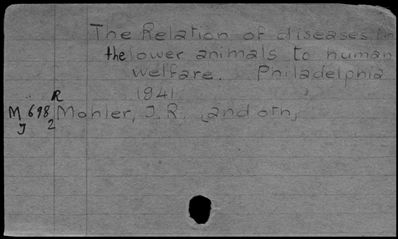 The Relation of diseases in
the lower animals to human
welfare. Philadelphia
1941
R
M 698 Mohler, J. R. , and oth,
J 2